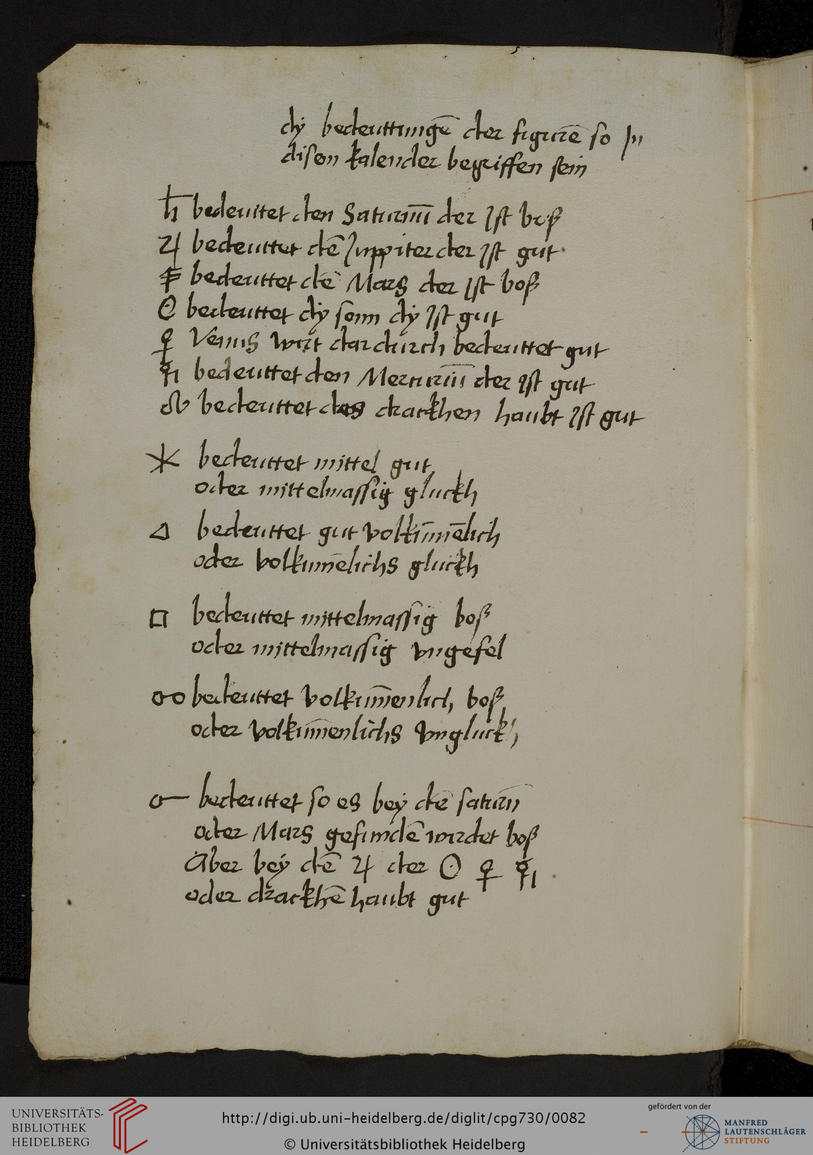 dÿ bedeuttungē der figurē so jn
disen kalender begriffen sein
♄ bedeuttet den Saturnū der Ist boß
♃ bedeuttet dē Juppiter der Ist gut
♂ bedeuttet dē Mars der Ist boß
☉ bedeuttet dÿ sonn dÿ Ist gut
♀ Venus wirt dardurch bedeuttet gut
☿ bedeuttet den Mercuriū der Ist gut
☊ bedeuttet des drackhen haubt Ist gut
⚹ bedeuttet mittel gut
oder mittelmassig gluckh
△ bedeuttet gut volkūmēlich
oder volkumēlichs gluckh
□ bedeuttet mittelmassig boß
oder mittelmassig vngefel
☍ bedeuttet volkum̄enlich boß
oder volkum̄enlichs vngluckh
☌ bedeuttet so es bey dē saturn̄
oder Mars gefundē wirdet boß
Aber bey dē ♃ der ☉ ♀ ☿
oder drackhē haubt gut
UNIVERSITÄTS-
BIBLIOTHEK
HEIDELBERG
http://digi.ub.uni-heidelberg.de/diglit/cpg730/0082
© Universitätsbibliothek Heidelberg
gefördert von der
MANFRED
LAUTENSCHLÄGER
STIFTUNG